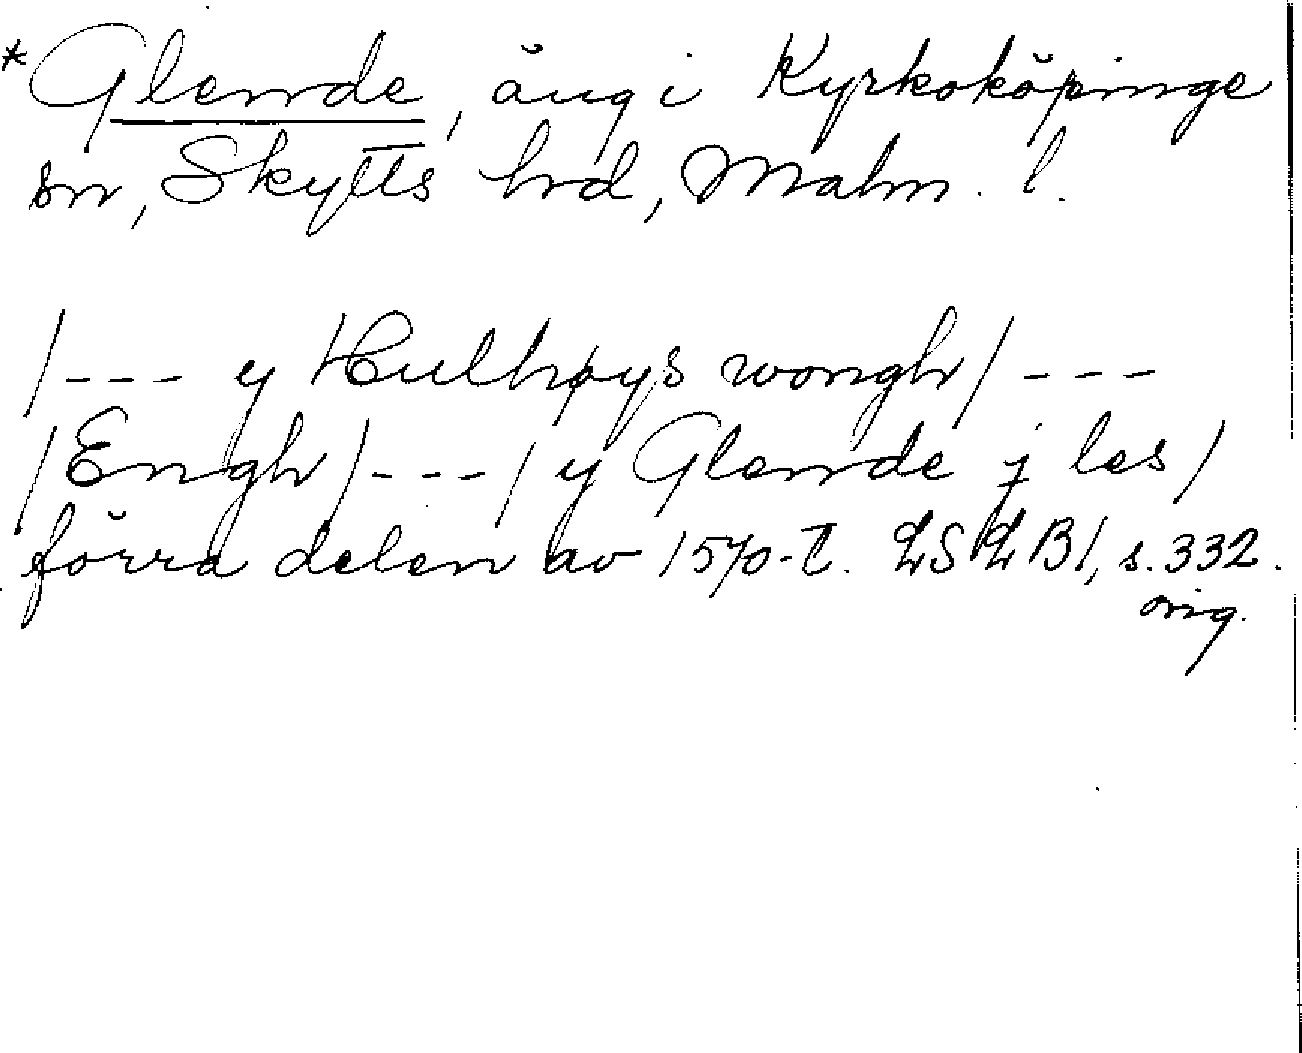 *Glende, äng i Kyrkoköpinge
sn, Skytts hrd, Malm. l.
/--- y Hulhøys wongh/ ---
/Engh/---/ y Glende j les/
förra delen av 1570-t. LSLB1, s. 332.
orig.